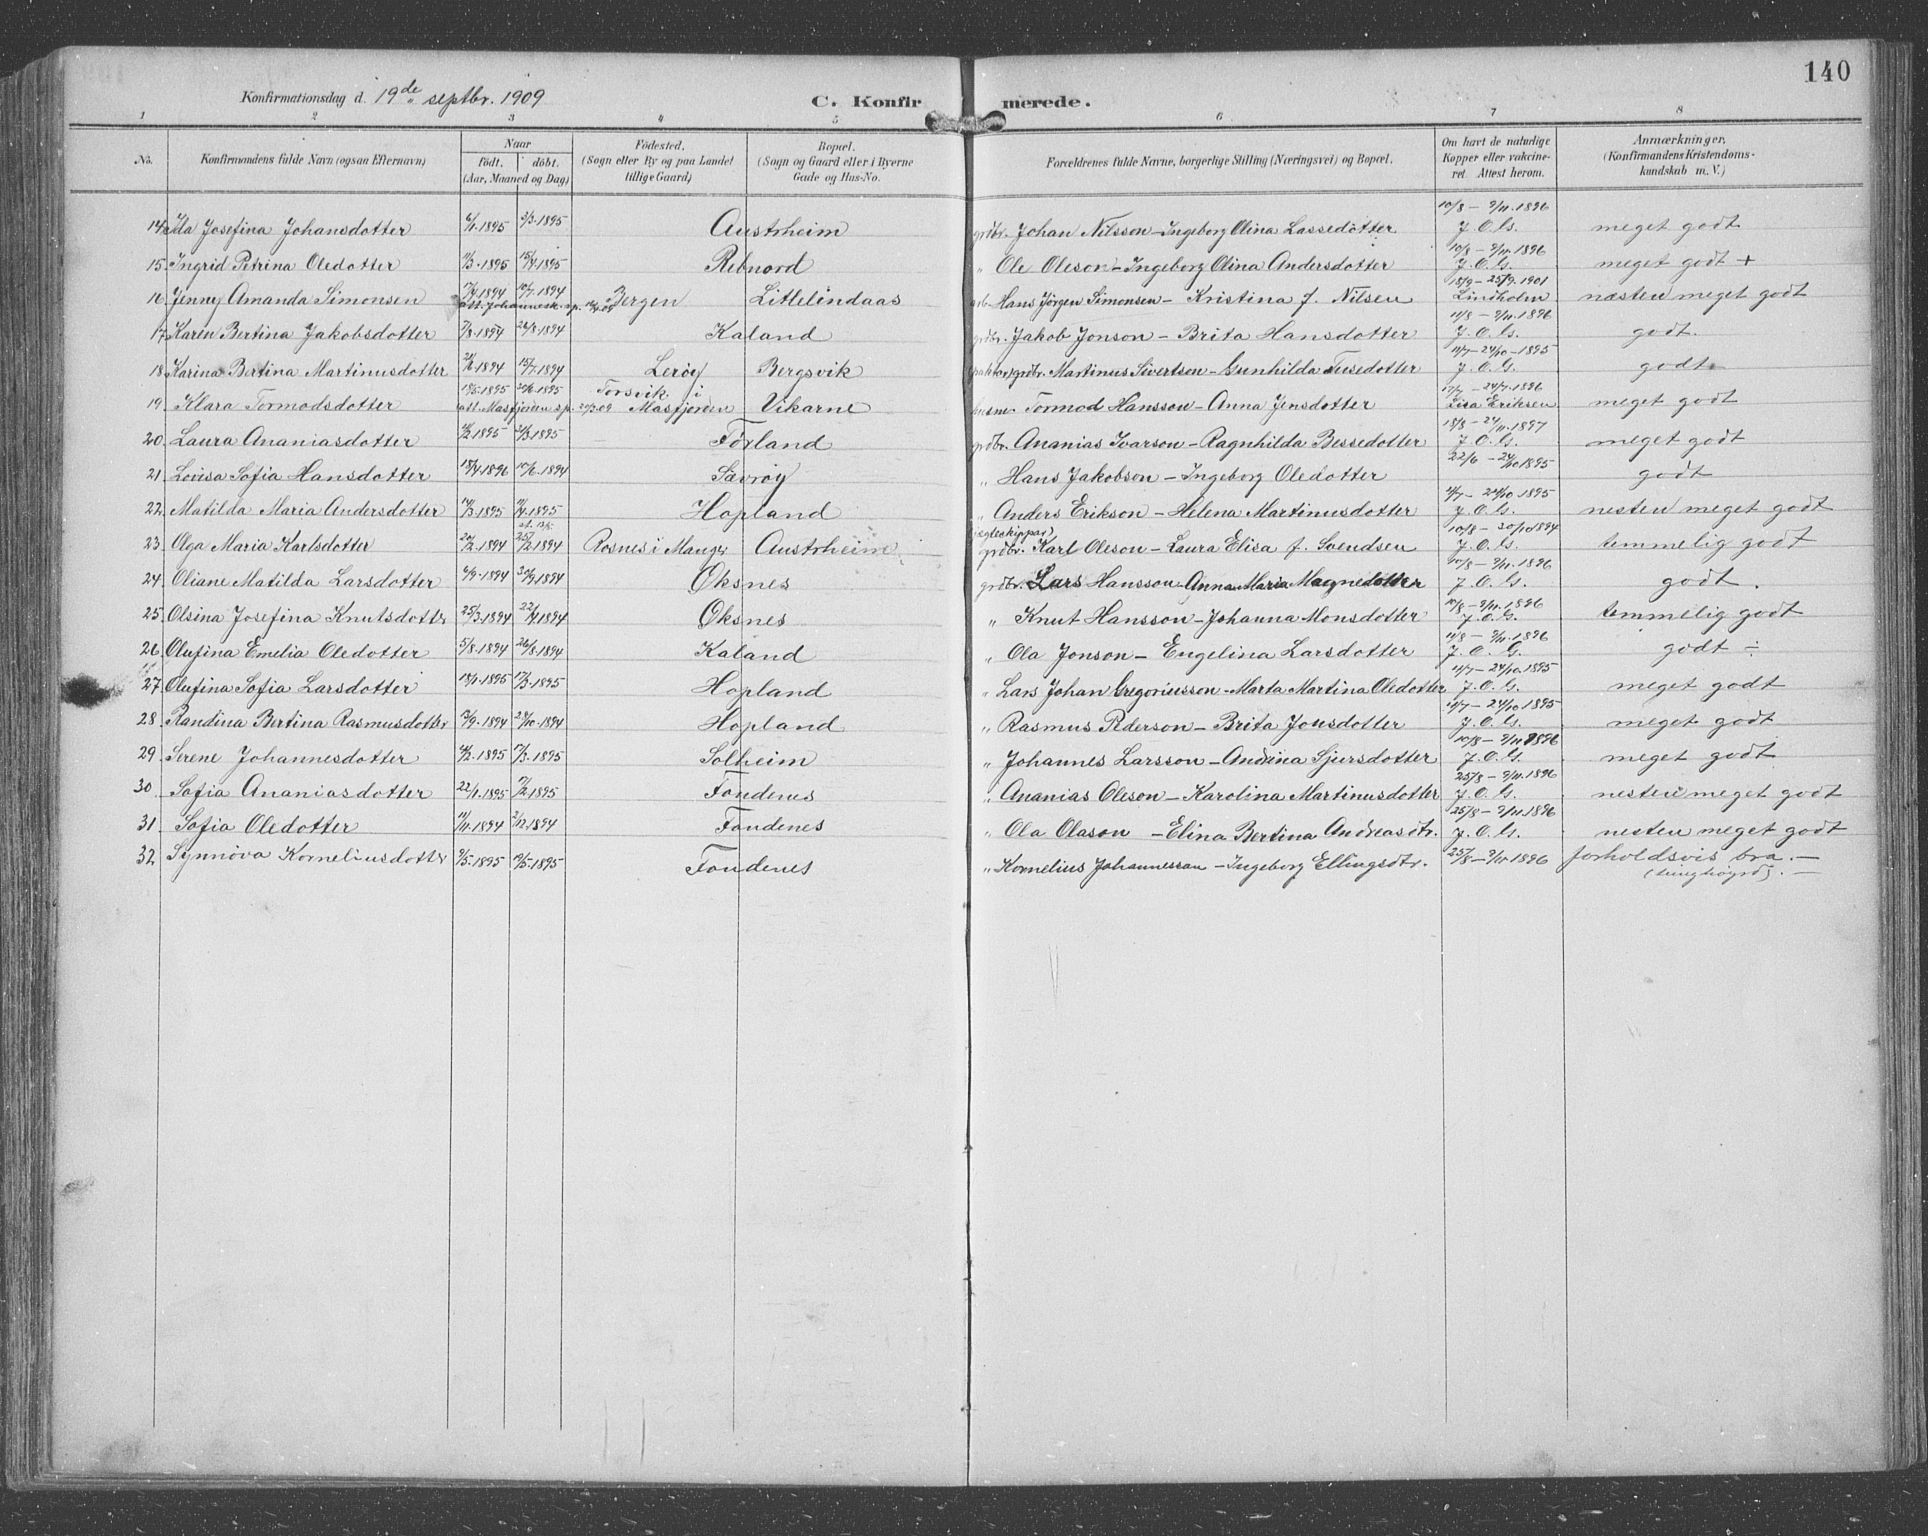 140
Konfirmationsdag d. 19de septbr. 1909 C. Konfirmerede.
1 2 3 4 5 6 7 8
No. Konfirmandens fulde Navn (ogsaa Efternavn) Naar født. døbt. (Aar, Maaned og Dag) Fødested. (Sogn eller By og paa Landet tillige Gaard) Bopæl. (Sogn og Gaard eller i Byerne Gade og Hus-No. Forældrenes fulde Navne, borgerlige Stilling (Næringsvei) og Bopæl. Om havt de naturlige Kopper eller vakcineret. Attest herom. Anmærkninger. (Konfirmandens Kristendomskundskab m. V.)
14 Ida Josefina Johansdotter 6/1.1895 3/3.1895 Austrheim grdbr. Johan Nilsson - Ingeborg Olina Lassedotter 10/8 - 9/11.1896 J.O.G. meget godt
15. Ingrid Petrina Oledotter 11/3.1895 15/4.1895 Rebnord " Ole Oleson - Ingeborg Olina Andersdotter 10/8 - 9/11.1896 J.O.G. meget godt +
16 Jenny Amanda Simonsen 17/4 1894 att. Johannesk. sp. Bergen Litlelindaas Hans Jörgen Simonsen - Kristina f. Nilsen 18/9 - 25/9.1901 Lindholm næsten meget godt
17 Karen Bertina Jakobsdotter 7/8.1894 26/8.1894 Kaland grdbr. Jakob Jonson - Brita Hansdotter 11/8 - 9/11.1896 J.O.G. godt.
18 Karina Bertina Martinusdotter 1894 15/7.1894 Lerøy Bergsvik grdbr. Martinus Sivertsen - Gunhilda Tusedotter 11/7 - 24/10 - 1895 J.O.G. godt
19. Klara Tormodsdotter 18/5.1895 20/6.1895 att. Masfjorden sp. Torsvik i Masfjorden Vikarne husm. Tormod Hansson - Anna Jensdotter 17/7 - 24/7.1896 Lisa Eriksen meget godt
20. Laura Ananiasdotter 1895 3/3.1895 Förland grdbr. Ananias Ivarson - Ragnhilda Bessedotter 18/8 - 24/11.1897 J.O.G. meget godt
21. Lovisa Sofia Hansdotter 18/4.1896 17/6.1894 Sævrøy " Hans Jakobson - Ingeborg Oledotter 22/6 - 24/10 1895 godt
22. Matilda Maria Andersdotter 14/3.1895 1895 Hopland " Anders Erikson - Helena Martinusdotter 11/7 - 24/10.1895 J.O.G. nesten meget godt
23. Olga Maria Karlsdotter 1894 25/2 1894 Rosnes i Manger Austrheim grdbr. Karl Oleson - Laura Elisa f. Svendsen 10/8 - 20/10 1894 J.O.G. temmelig godt
24. Oliane Matilda Larsdotter 6/9.1894 30/9.1894 Oksnes grdbr. Lars Hansson - Anna Maria Magnedotter 10/8 - 9/11.1896 J.O.G. godt.
25. Olsina Josefina Knutsdotter 25/3.1894 22/4.1894 Oksnes " Knut Hansson - Johanna Monsdotter 10/8 - 9/11.1896 J.O.G. temmelig godt
26. Olufina Emelia Oledotter 5/8.1894 26/8.1894 Kaland " Ola Jonson - Engelina Larsdotter 11/8 - 9/11.1896 J.O.G. godt ÷
27. Olufina Sofia Larsdotter 13/1.1895 17/3.1895 Hopland " Lars Johan Gregoriusson - Marta Martina Oledotter 11/7 - 24/10.1895 J.O.G. meget godt
28. Randina Bertina Rasmusdotter 13/9.1894 28/10.1894 Hopland " Rasmus Pederson - Brita Jonsdotter 11/7 - 24/10 1895 J.O.G. meget godt
29. Serene Johannesdotter 1895 17/3.1895 Solheim " Johannes Larsson - Andrina Sjursdotter 10/8 - 9/11 1896 J.O.G. meget godt
30. Sofia Ananiasdotter 22/1.1895 17/2.1895 Fondenes " Ananias Oleson - Karolina Martinusdotter 25/8 - 9/11.1896 J.O.G. nesten meget godt
31. Sofia Oledotter 11/11.1894 2/12.1894 Fondenes " Ola Olason - Elina Bertina Andreasdtr. 25/8 - 9/11 1896 J.O.G. nesten meget godt
32. Synnöva Korneliusdotter 9/5.1895 19/5.1895 Fondenes " Kornelius Johannesson - Ingeborg Ellingsdtr. 25/8 - 9/11 1896 forholdsvis bra. -
(tunghøyrd). -